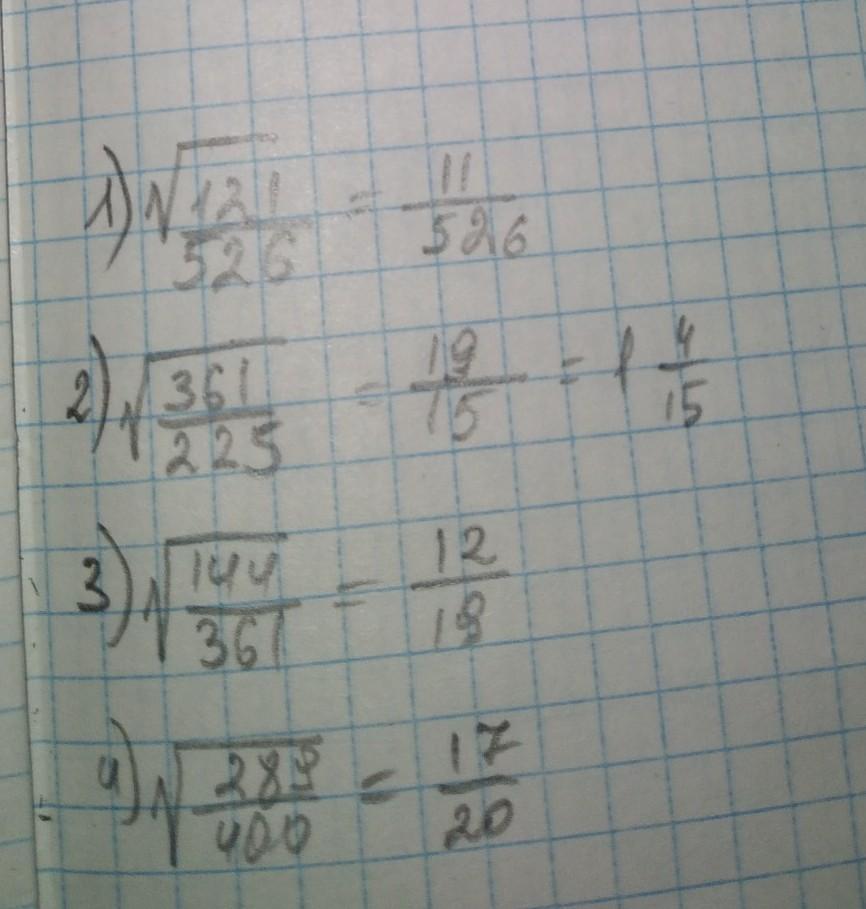 1) √121/526 = 11/526
2) √361/225 = 19/15 = 1 4/15
3) √144/361 = 12/19
4) √289/400 = 17/20